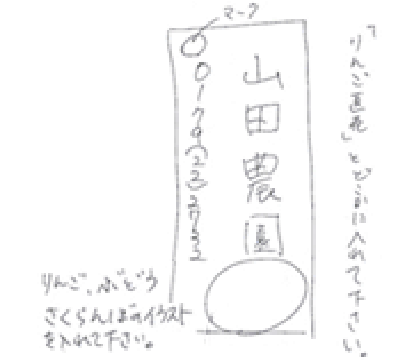 マーク
「りんご直売」とどこかに入れて下さい。
山田農園
0179(22)
りんご、ぶどう
さくらんぼのイラスト
を入れて下さい。